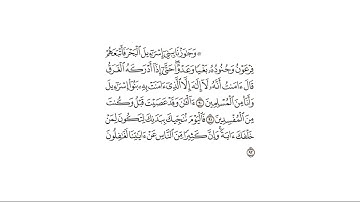 ۞وَجَٰوَزْنَا بِبَنِىٓ إِسْرَٰٓءِيلَ ٱلْبَحْرَ فَأَتْبَعَهُمْ
فِرْعَوْنُ وَجُنُودُهُۥ بَغْيًا وَعَدْوًا ۖ حَتَّىٰٓ إِذَآ أَدْرَكَهُ ٱلْغَرَقُ
قَالَ ءَامَنتُ أَنَّهُۥ لَآ إِلَٰهَ إِلَّا ٱلَّذِىٓ ءَامَنَتْ بِهِۦ بَنُوٓا۟ إِسْرَٰٓءِيلَ
وَأَنَا۠ مِنَ ٱلْمُسْلِمِينَ ٩٠ ءَآلْـَٰٔنَ وَقَدْ عَصَيْتَ قَبْلُ وَكُنتَ
مِنَ ٱلْمُفْسِدِينَ ٩١ فَٱلْيَوْمَ نُنَجِّيكَ بِبَدَنِكَ لِتَكُونَ لِمَنْ
خَلْفَكَ ءَايَةً ۚ وَإِنَّ كَثِيرًا مِّنَ ٱلنَّاسِ عَنْ ءَايَٰتِنَا لَغَٰفِلُونَ
٩٢